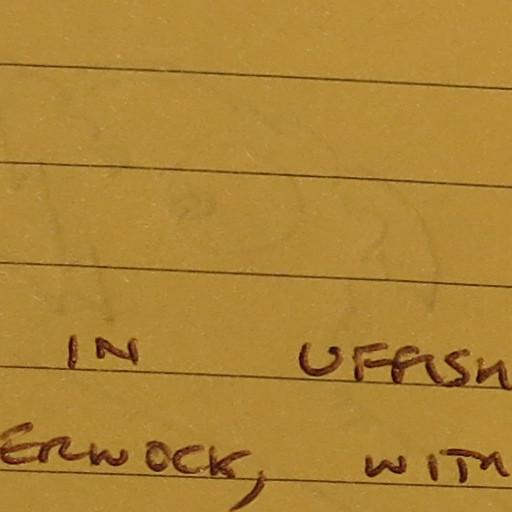 IN UFFISH
ERWOCK, WITH